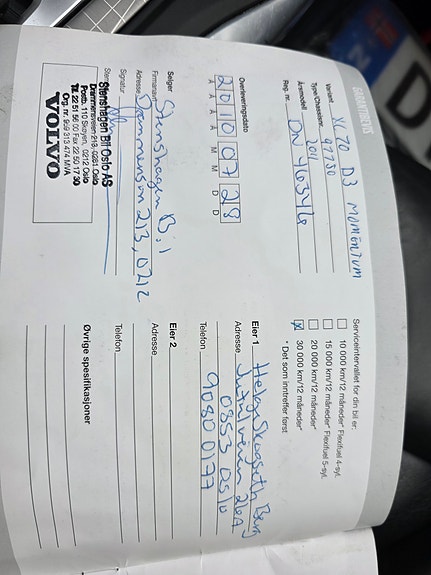 GARANTIBEVIS
Variant XC 70 D3 MOMENTUM
Type/Chassisnr. 97750
Årsmodell 2011
Reg. nr. DN 46346
Overleveringsdato
2010 07 28
Å Å Å Å M M D D
Selger
Firmanavn Stenshagen Bil
Adresse Drammensvn 213, 0212
Signatur
Stempel
Stenshagen Bil Oslo AS
Drammensveien 213, 0281 Oslo
Postb. 110 Skøyen, 0212 Oslo
Tlf. 22 51 56 00 Fax 22 50 17 30
Org. nr. 999 313 474 MVA
VOLVO
Serviceintervallet for din bil er:
10 000 km/12 måneder* Flexifuel 4-syl.
15 000 km/12 måneder* Flexifuel 5-syl.
20 000 km/12 måneder*
X 30 000 km/12 måneder*
* Det som inntreffer først
Eier 1 Helge Berg
Adresse 26A
0353 Oslo
Telefon 90800177
Eier 2
Adresse
Telefon
Øvrige spesifikasjoner